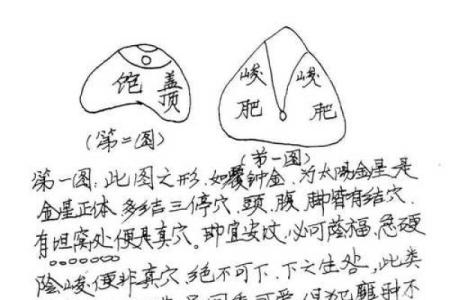 饱 盖顶
峻 峻
肥 肥
(第二图)
(第一图)
第一图:此图之形.如覆钟金.为太阳金星.是
金星正体.多结三停穴.头.腹.脚皆有结穴.
有坦窝处便是真穴.即宜安坟.必可荫福.忌硬
险峻.便非真穴.绝不可下.下之生处.此类